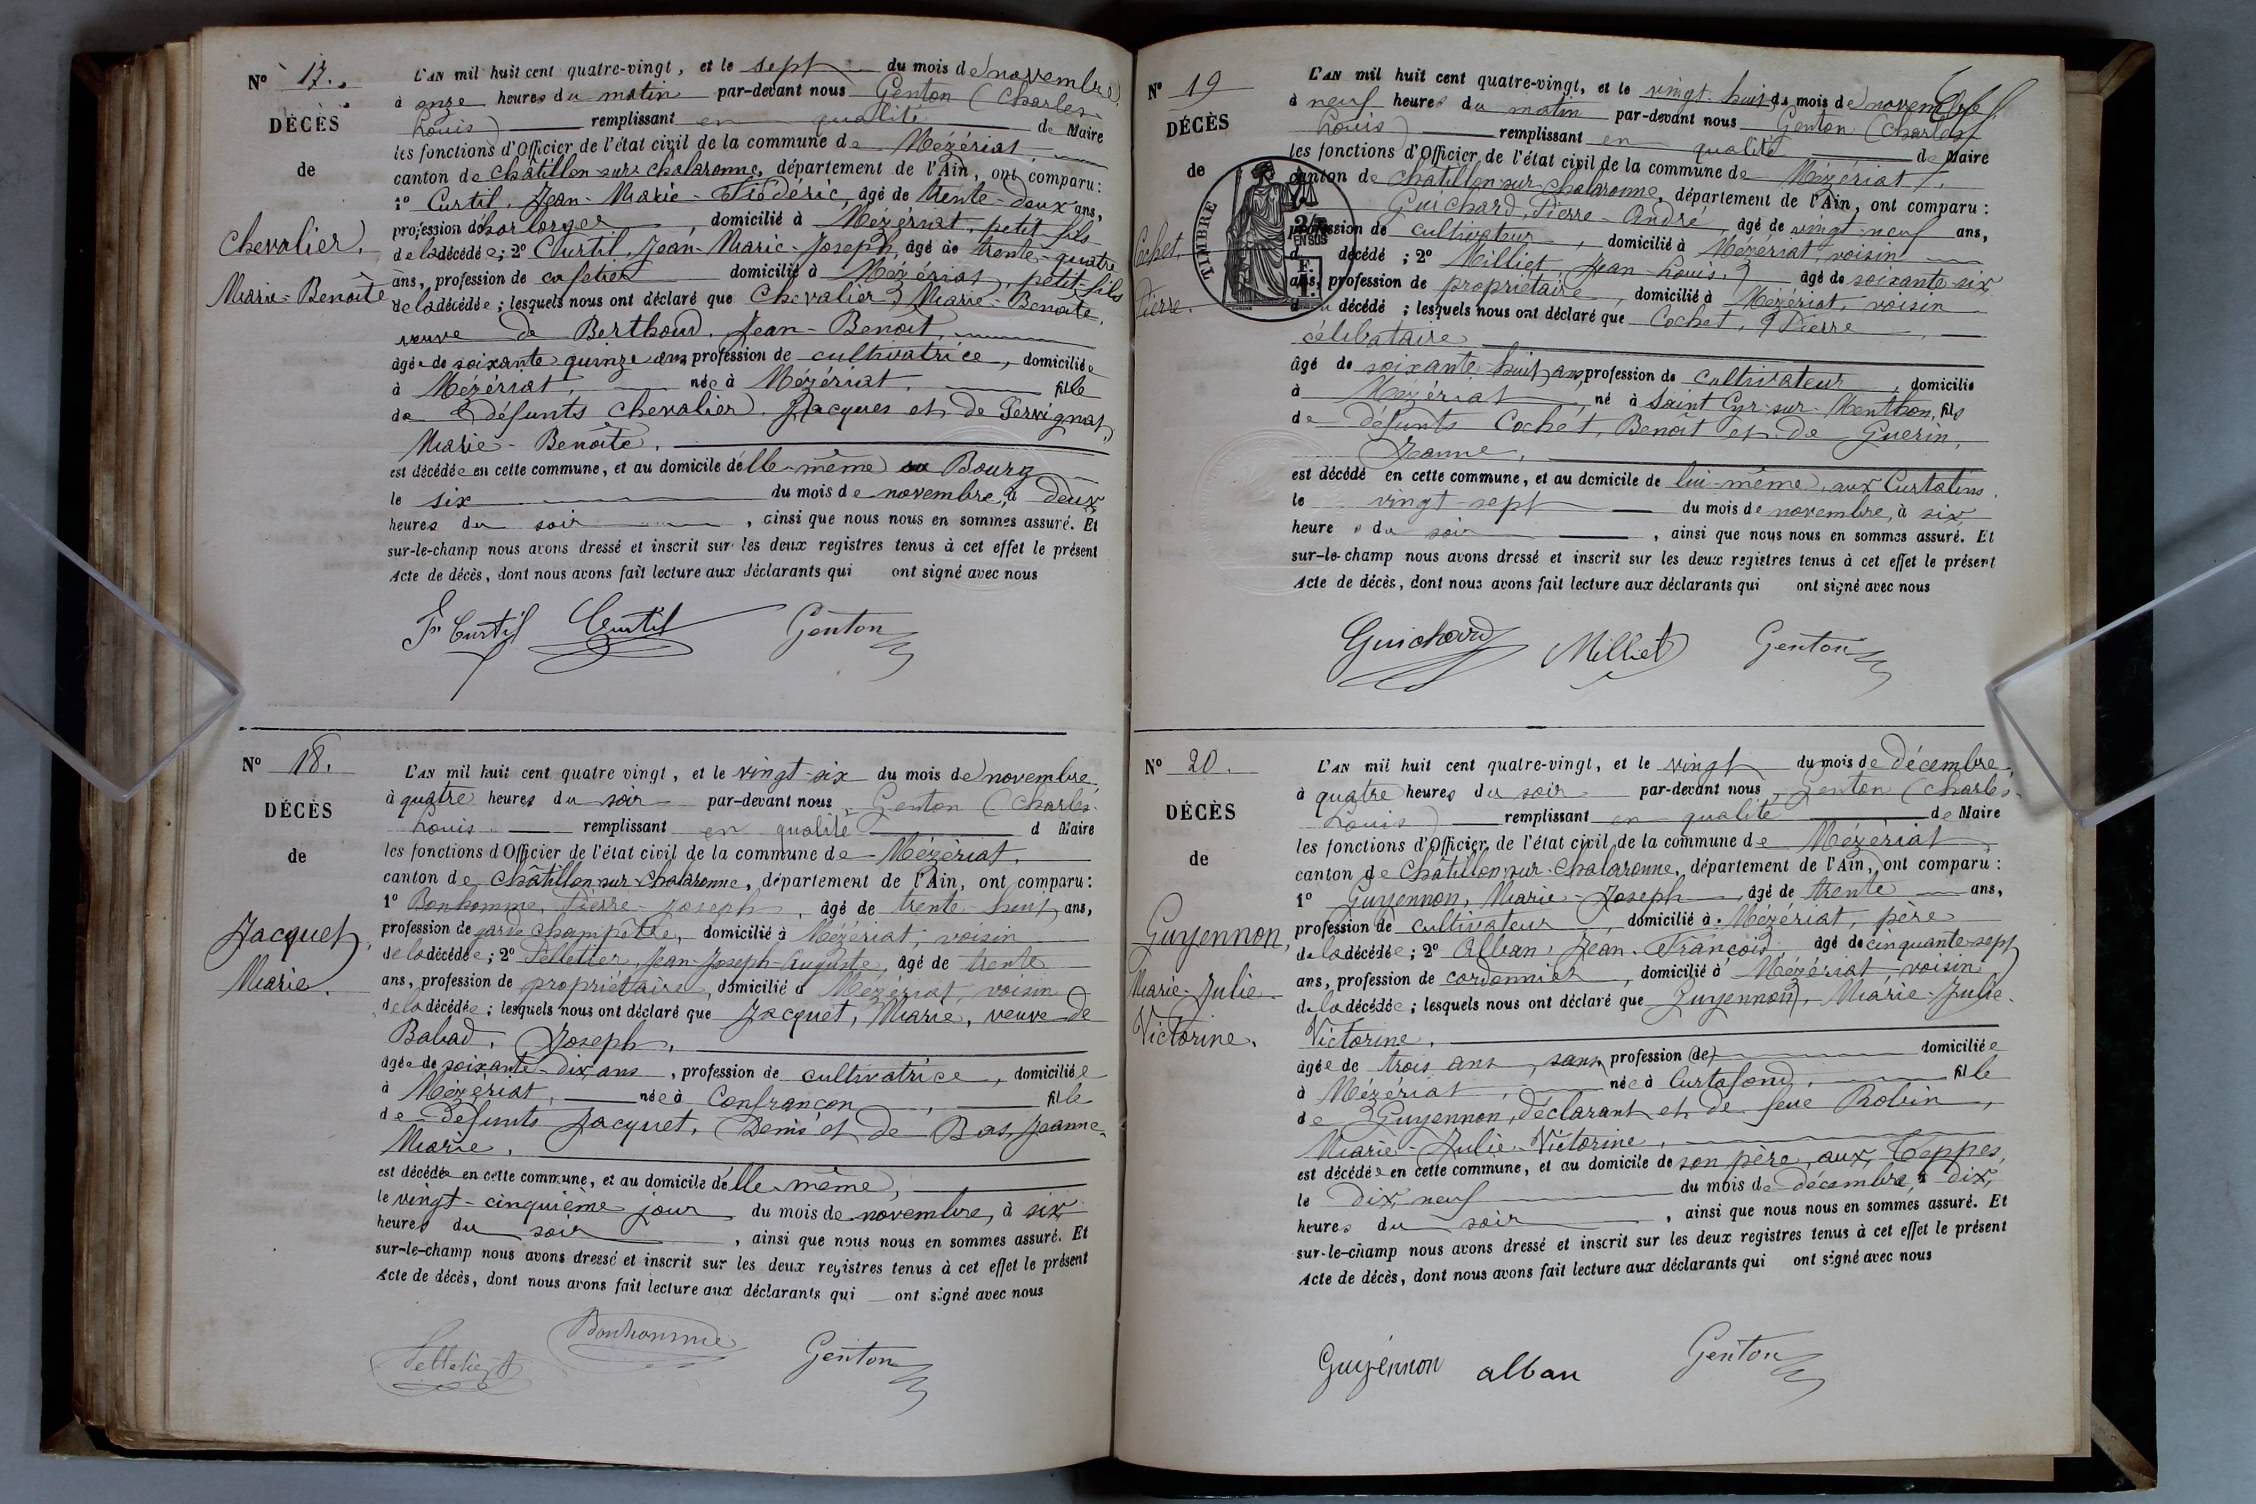 N° 17.
DÉCÈS
de
Chevalier,
Marie-Benoîte
L'AN mil huit cent quatre-vingt, et le sept du mois de novembre
à onze heures du matin par-devant nous Genton (Charles
Louis) remplissant en qualité de Maire
les fonctions d'Officier de l'état civil de la commune de Mézériat
canton de Châtillon-sur-Chalaronne, département de l'Ain, ont comparu :
1° Curtil, Jean-Marie-Frédéric, âgé de trente-deux ans,
profession d'horloger domicilié à Mézériat, petit-fils
de la décédée ; 2° Curtil, Jean-Marie-Joseph, âgé de trente-quatre
ans, profession de cafetier domicilié à Mézériat, petit-fils
de la décédée ; lesquels nous ont déclaré que Chevalier, Marie-Benoîte,
veuve de Berthoud, Jean-Benoit,
âgée de soixante quinze ans profession de cultivatrice, domiciliée
à Mézériat, née à Mézériat, fille
de défunts Chevalier, Jacques et de Pervignat,
Marie-Benoîte,
est décédée en cette commune, et au domicile d'elle-même au Bourg
le six du mois de novembre, à deux
heures du soir, ainsi que nous nous en sommes assuré. Et
sur-le-champ nous avons dressé et inscrit sur les deux registres tenus à cet effet le présent
Acte de décès, dont nous avons fait lecture aux déclarants qui ont signé avec nous
Fc Curtil Curtil Genton
N° 18.
DÉCÈS
de
Jacquet,
Marie.
L'AN mil huit cent quatre vingt, et le vingt-six du mois de novembre
à quatre heures du soir par-devant nous Genton (Charles
Louis remplissant en qualité d Maire
les fonctions d'Officier de l'état civil de la commune de Mézériat,
canton de Châtillon-sur-Chalaronne, département de l'Ain, ont comparu :
1° Bonhomme, Pierre-Joseph, âgé de trente-huit ans,
profession de garde champêtre, domicilié à Mézériat, voisin
de la décédée ; 2° Pelletier, Jean-Joseph-Auguste, âgé de trente
ans, profession de propriétaire, domicilié à Mézériat, voisin
de la décédée ; lesquels nous ont déclaré que Jacquet, Marie, veuve de
Babad, Joseph,
âgée de soixante-dix ans, profession de cultivatrice, domiciliée
à Mézériat, née à Confrançon, fille
de défunts Jacquet, Denis et de Bas, Jeanne-
Marie,
est décédée en cette commune, et au domicile d'elle-même,
le vingt-cinquième jour du mois de novembre, à six
heures du soir, ainsi que nous nous en sommes assuré. Et
sur-le-champ nous avons dressé et inscrit sur les deux registres tenus à cet effet le présent
Acte de décès, dont nous avons fait lecture aux déclarants qui ont signé avec nous
Pelletier A Bonhomme Genton
N° 19
DÉCÈS
de
TIMBRE
2/10
EN SUS
Cochet,
Pierre.
L'AN mil huit cent quatre-vingt, et le vingt-huit du mois de novembre
à neuf heures du matin par-devant nous Genton (Charles
Louis) remplissant en qualité de Maire
les fonctions d'Officier de l'état civil de la commune de Mézériat
canton de Châtillon-sur-Chalaronne, département de l'Ain, ont comparu :
Guichard, Pierre-André, âgé de vingt-neuf ans,
profession de cultivateur, domicilié à Mézériat, voisin
d décédé ; 2° Milliet, Jean-Louis, âgé de soixante-six
ans, profession de propriétaire, domicilié à Mézériat, voisin
du décédé ; lesquels nous ont déclaré que Cochet, Pierre,
célibataire
âgé de soixante-huit ans, profession de cultivateur, domicilié
à Mézériat, né à Saint Cyr-sur-Menthon, fils
de défunts Cochet, Benoît et de Guerin,
Jeanne,
est décédé en cette commune, et au domicile de lui-même, aux Curtatins,
le vingt-sept du mois de novembre, à six
heures du soir, ainsi que nous nous en sommes assuré. Et
sur-le-champ nous avons dressé et inscrit sur les deux registres tenus à cet effet le présent
Acte de décès, dont nous avons fait lecture aux déclarants qui ont signé avec nous
Guichard Milliet Genton
N° 20.
DÉCÈS
de
Guyennon,
Marie-Julie-
Victorine.
L'AN mil huit cent quatre-vingt, et le vingt du mois de décembre,
à quatre heures du soir par-devant nous, Genton (Charles-
Louis) remplissant en qualité de Maire
les fonctions d'Officier de l'état civil de la commune de Mézériat
canton de Châtillon-sur-Chalaronne, département de l'Ain, ont comparu :
1° Guyennon, Marie-Joseph, âgé de trente ans,
profession de cultivateur, domicilié à Mézériat, père
de la décédée ; 2° Alban, Jean-François, âgé de cinquante-sept
ans, profession de cordonnier, domicilié à Mézériat, voisin
de la décédée ; lesquels nous ont déclaré que Guyennon, Marie-Julie-
Victorine,
âgée de trois ans, sans profession (de) domiciliée
à Mézériat, née à Curtafond, fille
de Guyennon, déclarant et de feue Robin,
Marie-Julie-Victorine,
est décédée en cette commune, et au domicile de son père, aux Teppes,
le dix neuf du mois de décembre, à dix
heures du soir, ainsi que nous nous en sommes assuré. Et
sur-le-champ nous avons dressé et inscrit sur les deux registres tenus à cet effet le présent
Acte de décès, dont nous avons fait lecture aux déclarants qui ont signé avec nous
Guyennon alban Genton